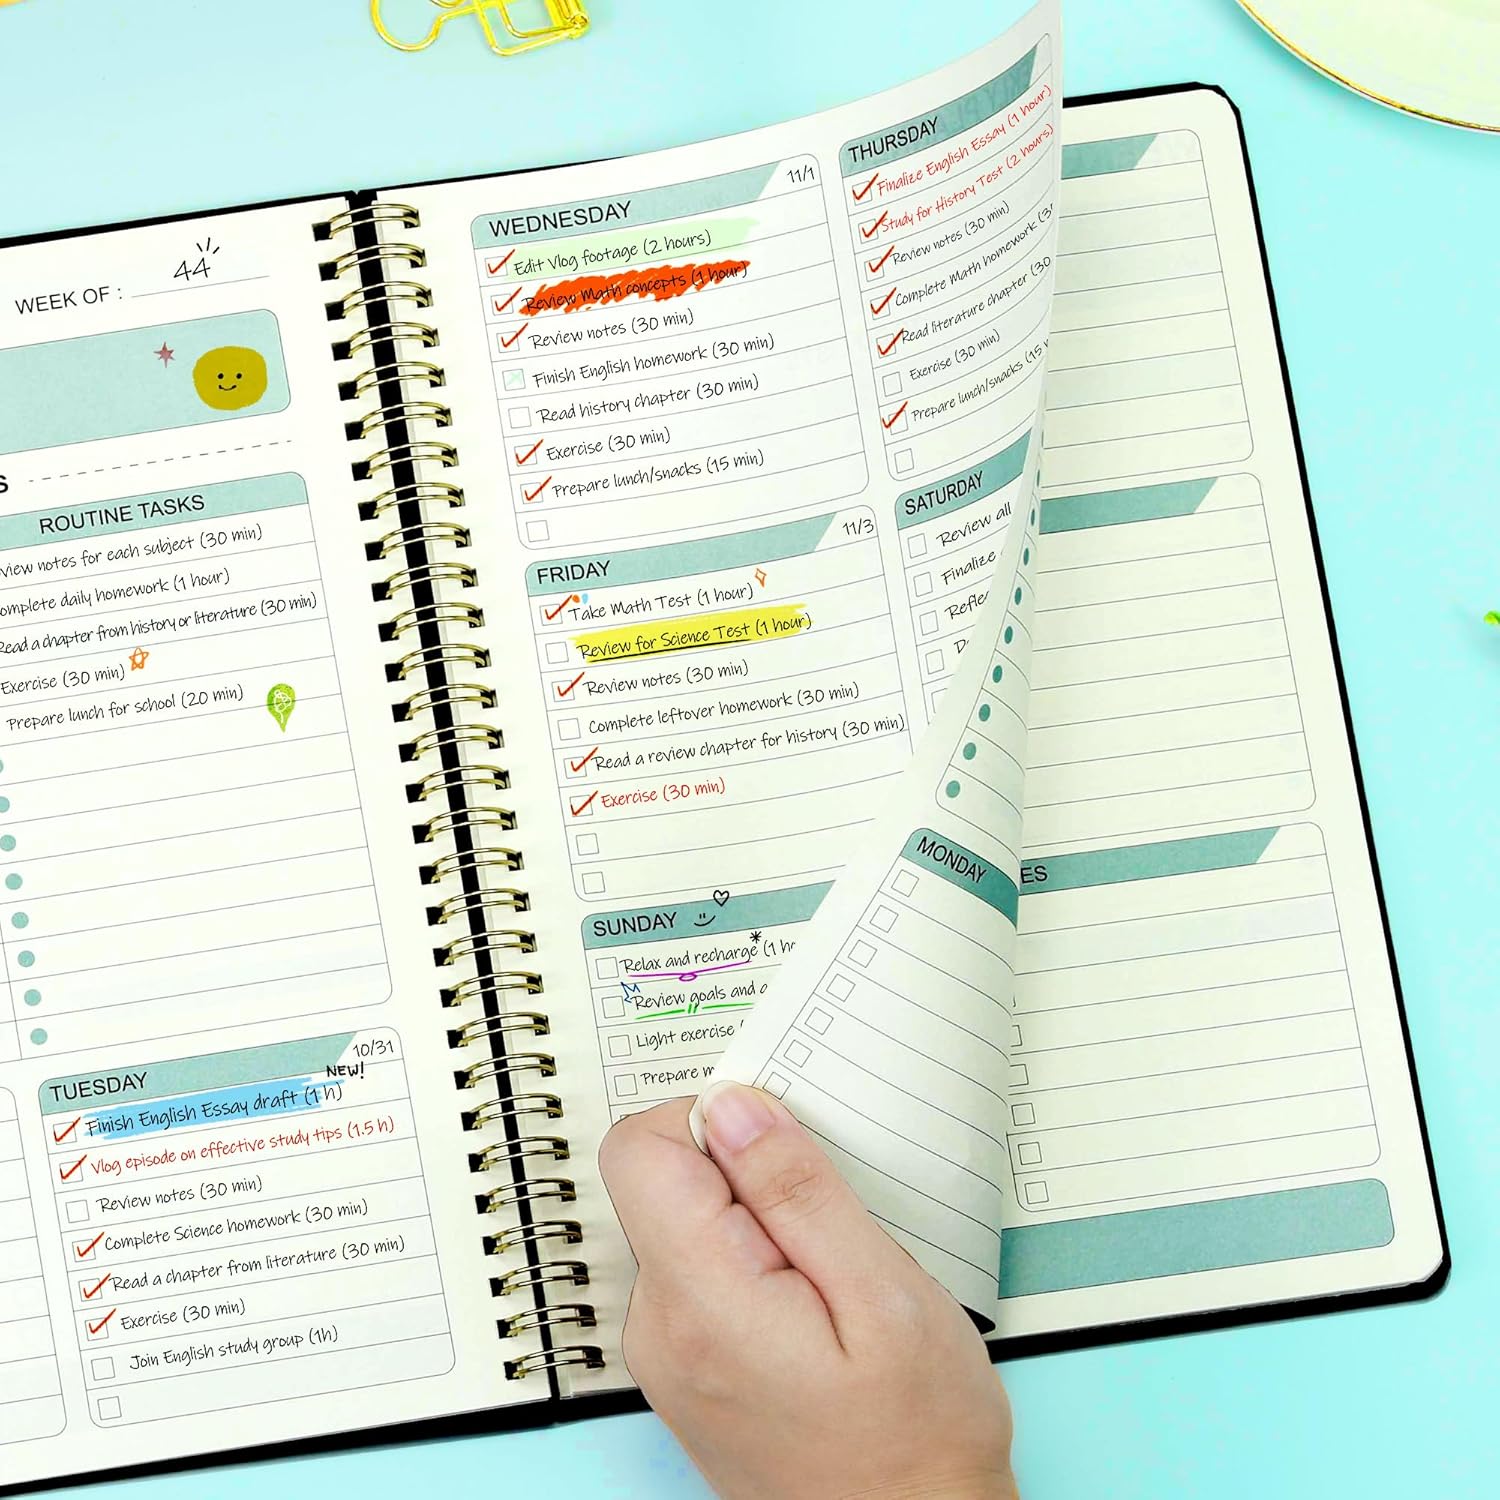 44
WEEK OF :
S
ROUTINE TASKS
view notes for each subject (30 min)
omplete daily homework (1 hour)
Read a chapter from history or literature (30 min)
Exercise (30 min)
Prepare lunch for school (20 min)
TUESDAY
10/31
NEW!
Finish English Essay draft (1 h)
Vlog episode on effective study tips (1.5 h)
Review notes (30 min)
Complete Science homework (30 min)
Read a chapter from literature (30 min)
Exercise (30 min)
Join English study group (1h)
WEDNESDAY
11/1
Edit Vlog footage (2 hours)
Review Math concepts (1 hour)
Review notes (30 min)
Finish English homework (30 min)
Read history chapter (30 min)
Exercise (30 min)
Prepare lunch/snacks (15 min)
THURSDAY
Finalize English Essay (1 hour)
Study for History Test (2 hours)
Review notes (30 min)
Complete Math homework (30
Read literature chapter (30
Exercise (30 min)
Prepare lunch/snacks (15
FRIDAY
11/3
Take Math Test (1 hour)
Review for Science Test (1 hour)
Review notes (30 min)
Complete leftover homework (30 min)
Read a review chapter for history (30 min)
Exercise (30 min)
SATURDAY
Review all
Finalize
Refle
SUNDAY
Relax and recharge* (1 h
Review goals and
Light exercise
Prepare m
MONDAY
ES